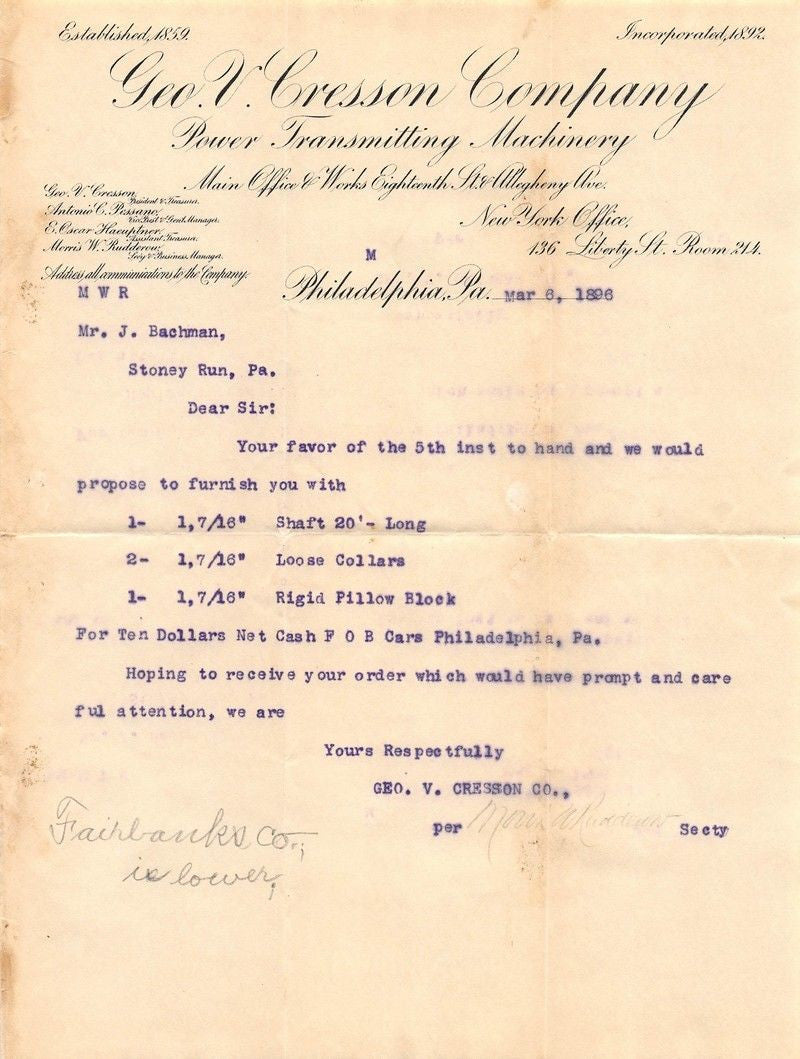 Established, 1859.
Incorporated, 1892.
Geo. V. Cresson Company
Power Transmitting Machinery
Main Office & Works Eighteenth St. & Allegheny Ave.
Geo. V. Cresson,
President & Treasurer.
Antonio C. Pessano,
Vice Prest & Genl Manager.
E. Oscar Haeuptner,
Assistant Treasurer.
Morris W. Rudderow,
Secy & Business Manager.
Address all communications to the Company.
New York Office,
136 Liberty St. Room 214.
M
M W R
Philadelphia, Pa. Mar 6, 1896
Mr. J. Bachman,
Stoney Run, Pa.
Dear Sir:
Your favor of the 5th inst to hand and we would
propose to furnish you with
1- 1,7/16" Shaft 20'- Long
2- 1,7/16" Loose Collars
1- 1,7/16" Rigid Pillow Block
For Ten Dollars Net Cash F O B Cars Philadelphia, Pa.
Hoping to receive your order which would have prompt and care
ful attention, we are
Yours Respectfully
GEO. V. CRESSON CO.,
per Morris W Rudderow Secty
Fairbanks Co.,
is lower,